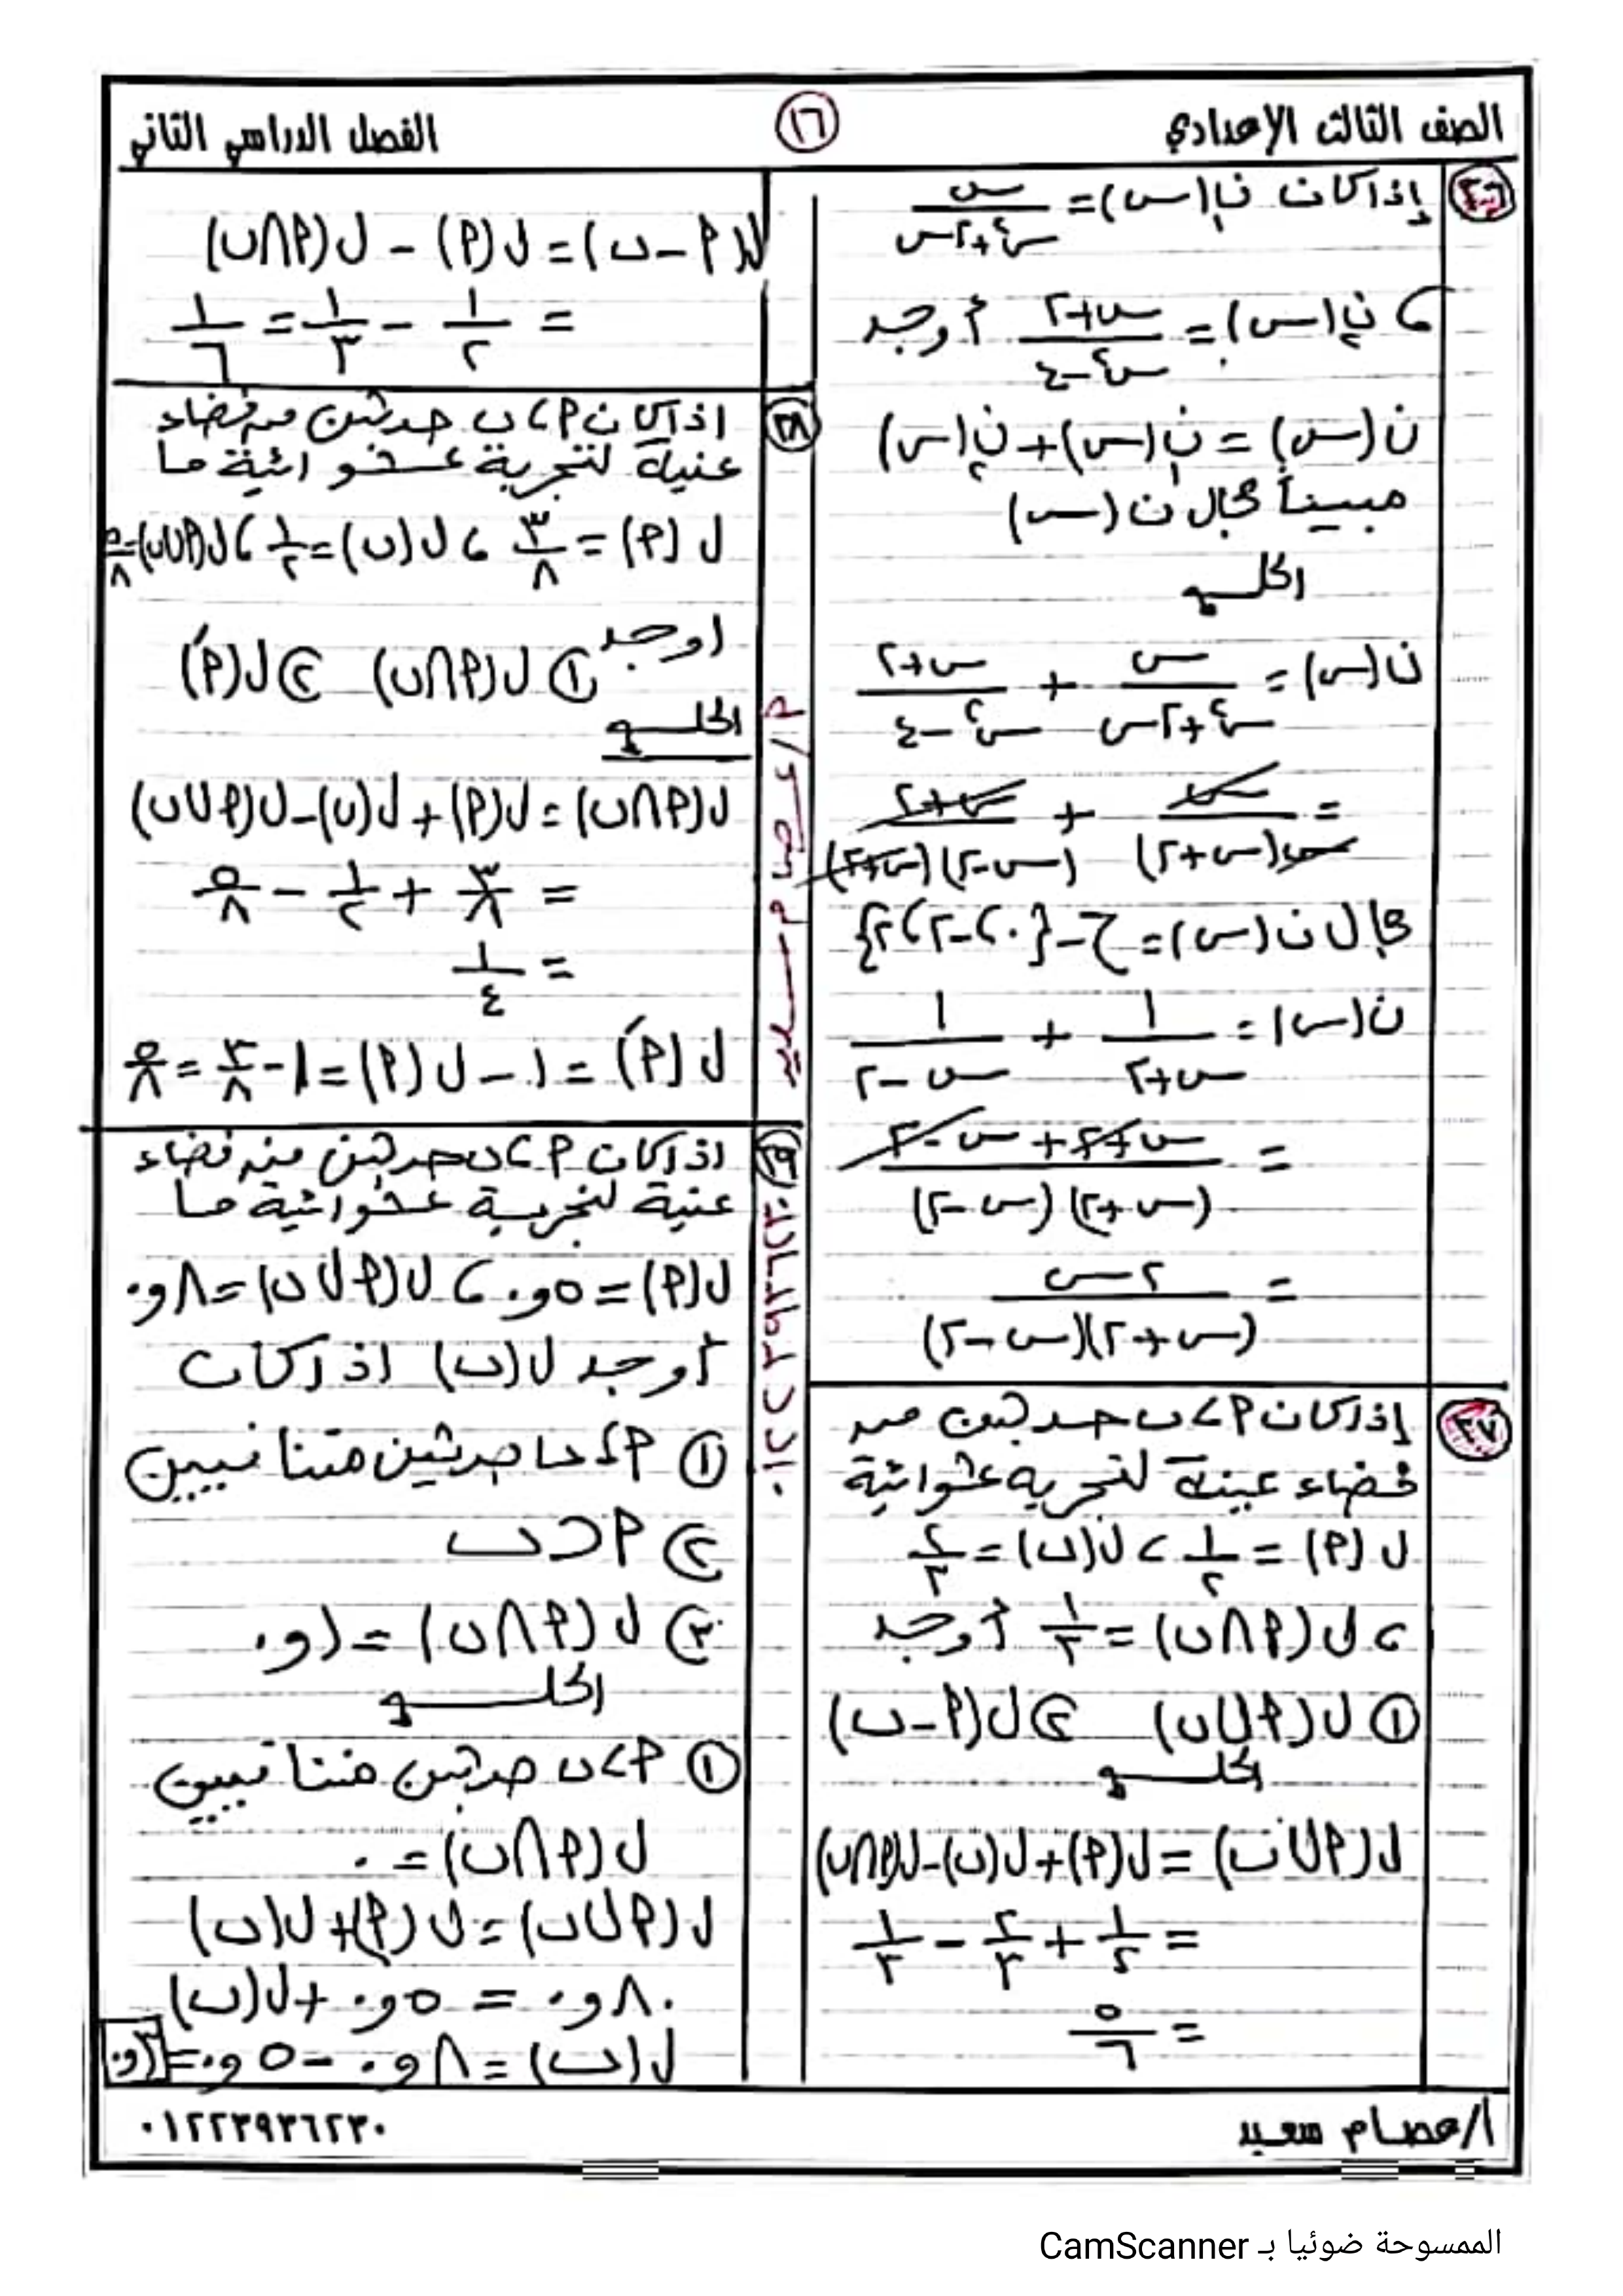 الصف الثالث الإعدادي
١٦
الفصل الدراسي الثاني
٣٦ إذا كان ن١(س) = س / (س² + ٢س)
، ن٢(س) = (س + ٢) / (س² - ٤) أوجد
ن(س) = ن١(س) + ن٢(س)
مبيناً مجال ن(س)
الحل
ن(س) = س / (س² + ٢س) + (س + ٢) / (س² - ٤)
= س / س(س + ٢) + (س + ٢) / (س - ٢)(س + ٢)
مجال ن(س) = ح - {٠، -٢، ٢}
ن(س) = ١ / (س + ٢) + ١ / (س - ٢)
= (س - ٢ + س + ٢) / (س + ٢)(س - ٢)
= ٢س / (س + ٢)(س - ٢)
٣٧ إذا كان P، ب حدثين من
فضاء عينة لتجربة عشوائية
ل(P) = ١/٢ ، ل(ب) = ٢/٣
، ل(P∩ب) = ١/٣ أوجد
① ل(P∪ب) ② ل(P-ب)
الحل
ل(P∪ب) = ل(P) + ل(ب) - ل(P∩ب)
= ١/٢ + ٢/٣ - ١/٣
= ٥/٦
ل(P-ب) = ل(P) - ل(P∩ب)
= ١/٢ - ١/٣ = ١/٦
٣٨ اذا كان P، ب حدثين من فضاء
عنية لتجربة عشوائية ما
ل(P) = ٣/٨ ، ل(ب) = ١/٢ ، ل(P∪ب) = ٥/٨
اوجد ① ل(P∩ب) ② ل(Ṕ)
الحل
ل(P∩ب) = ل(P) + ل(ب) - ل(P∪ب)
= ٣/٨ + ١/٢ - ٥/٨
= ١/٤
ل(Ṕ) = ١ - ل(P) = ١ - ٣/٨ = ٥/٨
٣٩ اذا كان P، ب حدثين من فضاء
عنية لتجربة عشوائية ما
ل(P) = ٥و٠ ، ل(P∪ب) = ٨و٠
أوجد ل(ب) اذا كان
① P، ب حدثين متنافيين
② P⊂ب
③ ل(P∩ب) = ١و٠
الحل
① P، ب حدثين متنافيين
ل(P∩ب) = ٠
ل(P∪ب) = ل(P) + ل(ب)
٨و٠ = ٥و٠ + ل(ب)
ل(ب) = ٨و٠ - ٥و٠ = ٣و٠
أ/عصام سعيد
٠١٢٢٣٩٣٦٢٣٠
الممسوحة ضوئيا بـ CamScanner